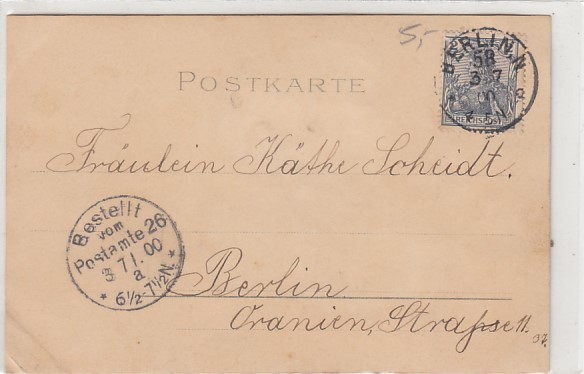 5,-
BERLIN, N.
58
3 7
00
REICHSPOST
POSTKARTE
Fräulein Käthe Scheidt.
Bestellt
vom
Postamte 26
3 7 1. 00
a
* 6½-7½N. *
Berlin.
Oranien, Straße 11.